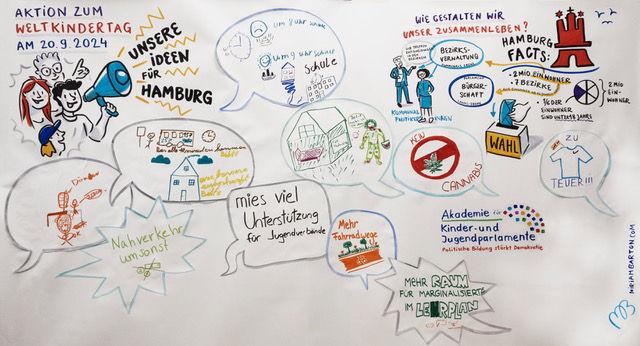 AKTION ZUM
WELTKINDERTAG
AM 20.9.2024
UNSERE
IDEEN
FÜR
HAMBURG
um 8 uhr schule
um 9 uhr schule
Schule
WIE GESTALTEN WIR
UNSER ZUSAMMENLEBEN?
BEZIRKS-
VERWALTUNG
BÜRGER-
SCHAFT
KOMMUNAL
POLITIKER*INNEN
HAMBURG
FACTS:
2 MIO EINWOHNER
7 BEZIRKE
EINWOHNER
SIND UNTER 18 JAHRE
2 MIO
EIN-
WOHNER
WAHL
KEIN
CANNABIS
ZU
TEUER!!!
Nahverkehr
umsonst
mies viel
Unterstützung
für Jugendverbände
Mehr
Fahrradwege
MEHR RAUM
FÜR MARGINALISIERTE
IM LEHRPLAN
Akademie für
Kinder-und
Jugendparlamente
Politische Bildung stärkt Demokratie
MIRIAMBARTON.COM